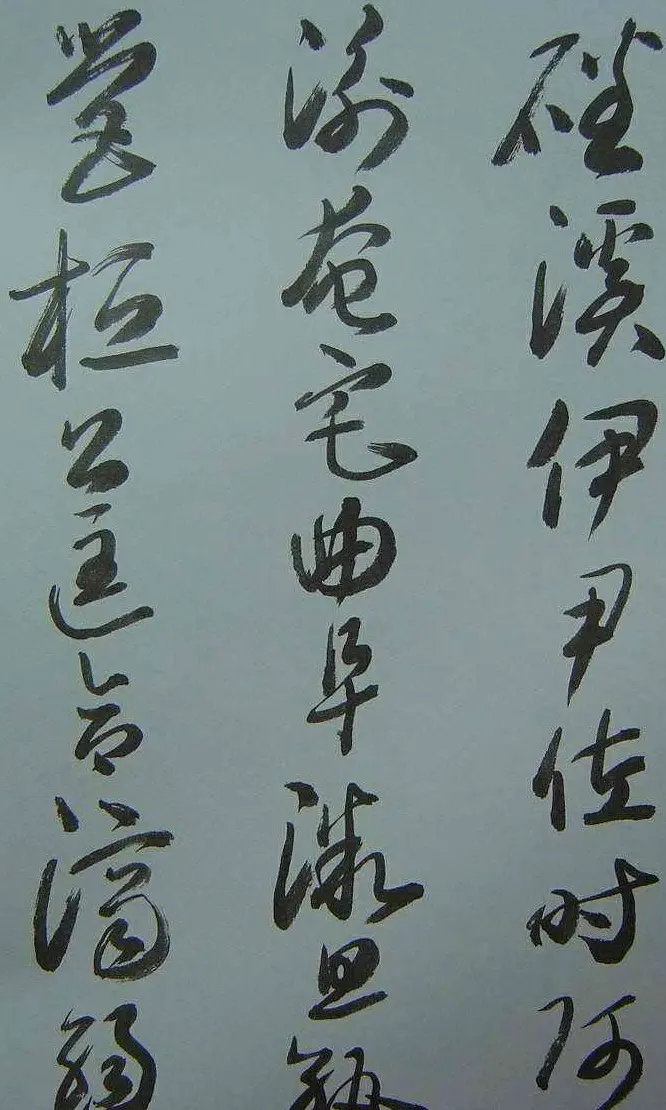 磻溪伊尹佐时阿
衡奄宅曲阜微旦孰
營桓公匡合濟弱